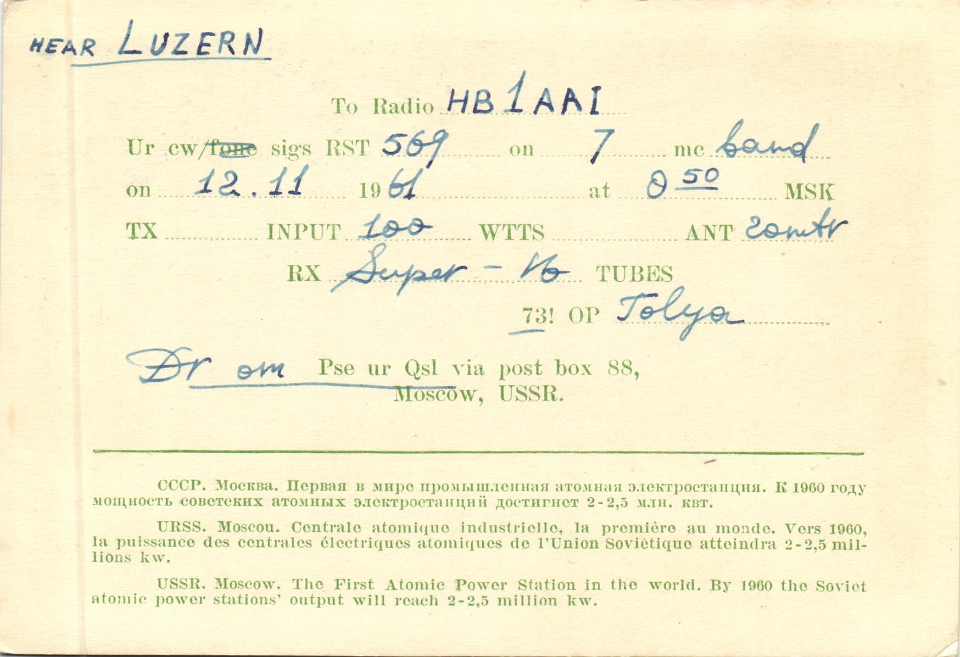 NEAR LUZERN
To Radio HB1AAI
Ur cw/fone sigs RST 569 on 7 mc band
on 12.11 1961 at 0 50 MSK
TX INPUT 100 WTTS ANT 20mtr
RX Super - 16 TUBES
73! OP Tolya
Dr om Pse ur Qsl via post box 88,
Moscow, USSR.
СССР. Москва. Первая в мире промышленная атомная электростанция. К 1960 году
мощность советских атомных электростанций достигнет 2-2,5 млн. квт.
URSS. Moscou. Centrale atomique industrielle, la première au monde. Vers 1960,
la puissance des centrales électriques atomiques de l'Union Soviétique atteindra 2-2,5 mil-
lions kw.
USSR. Moscow. The First Atomic Power Station in the world. By 1960 the Soviet
atomic power stations' output will reach 2-2,5 million kw.